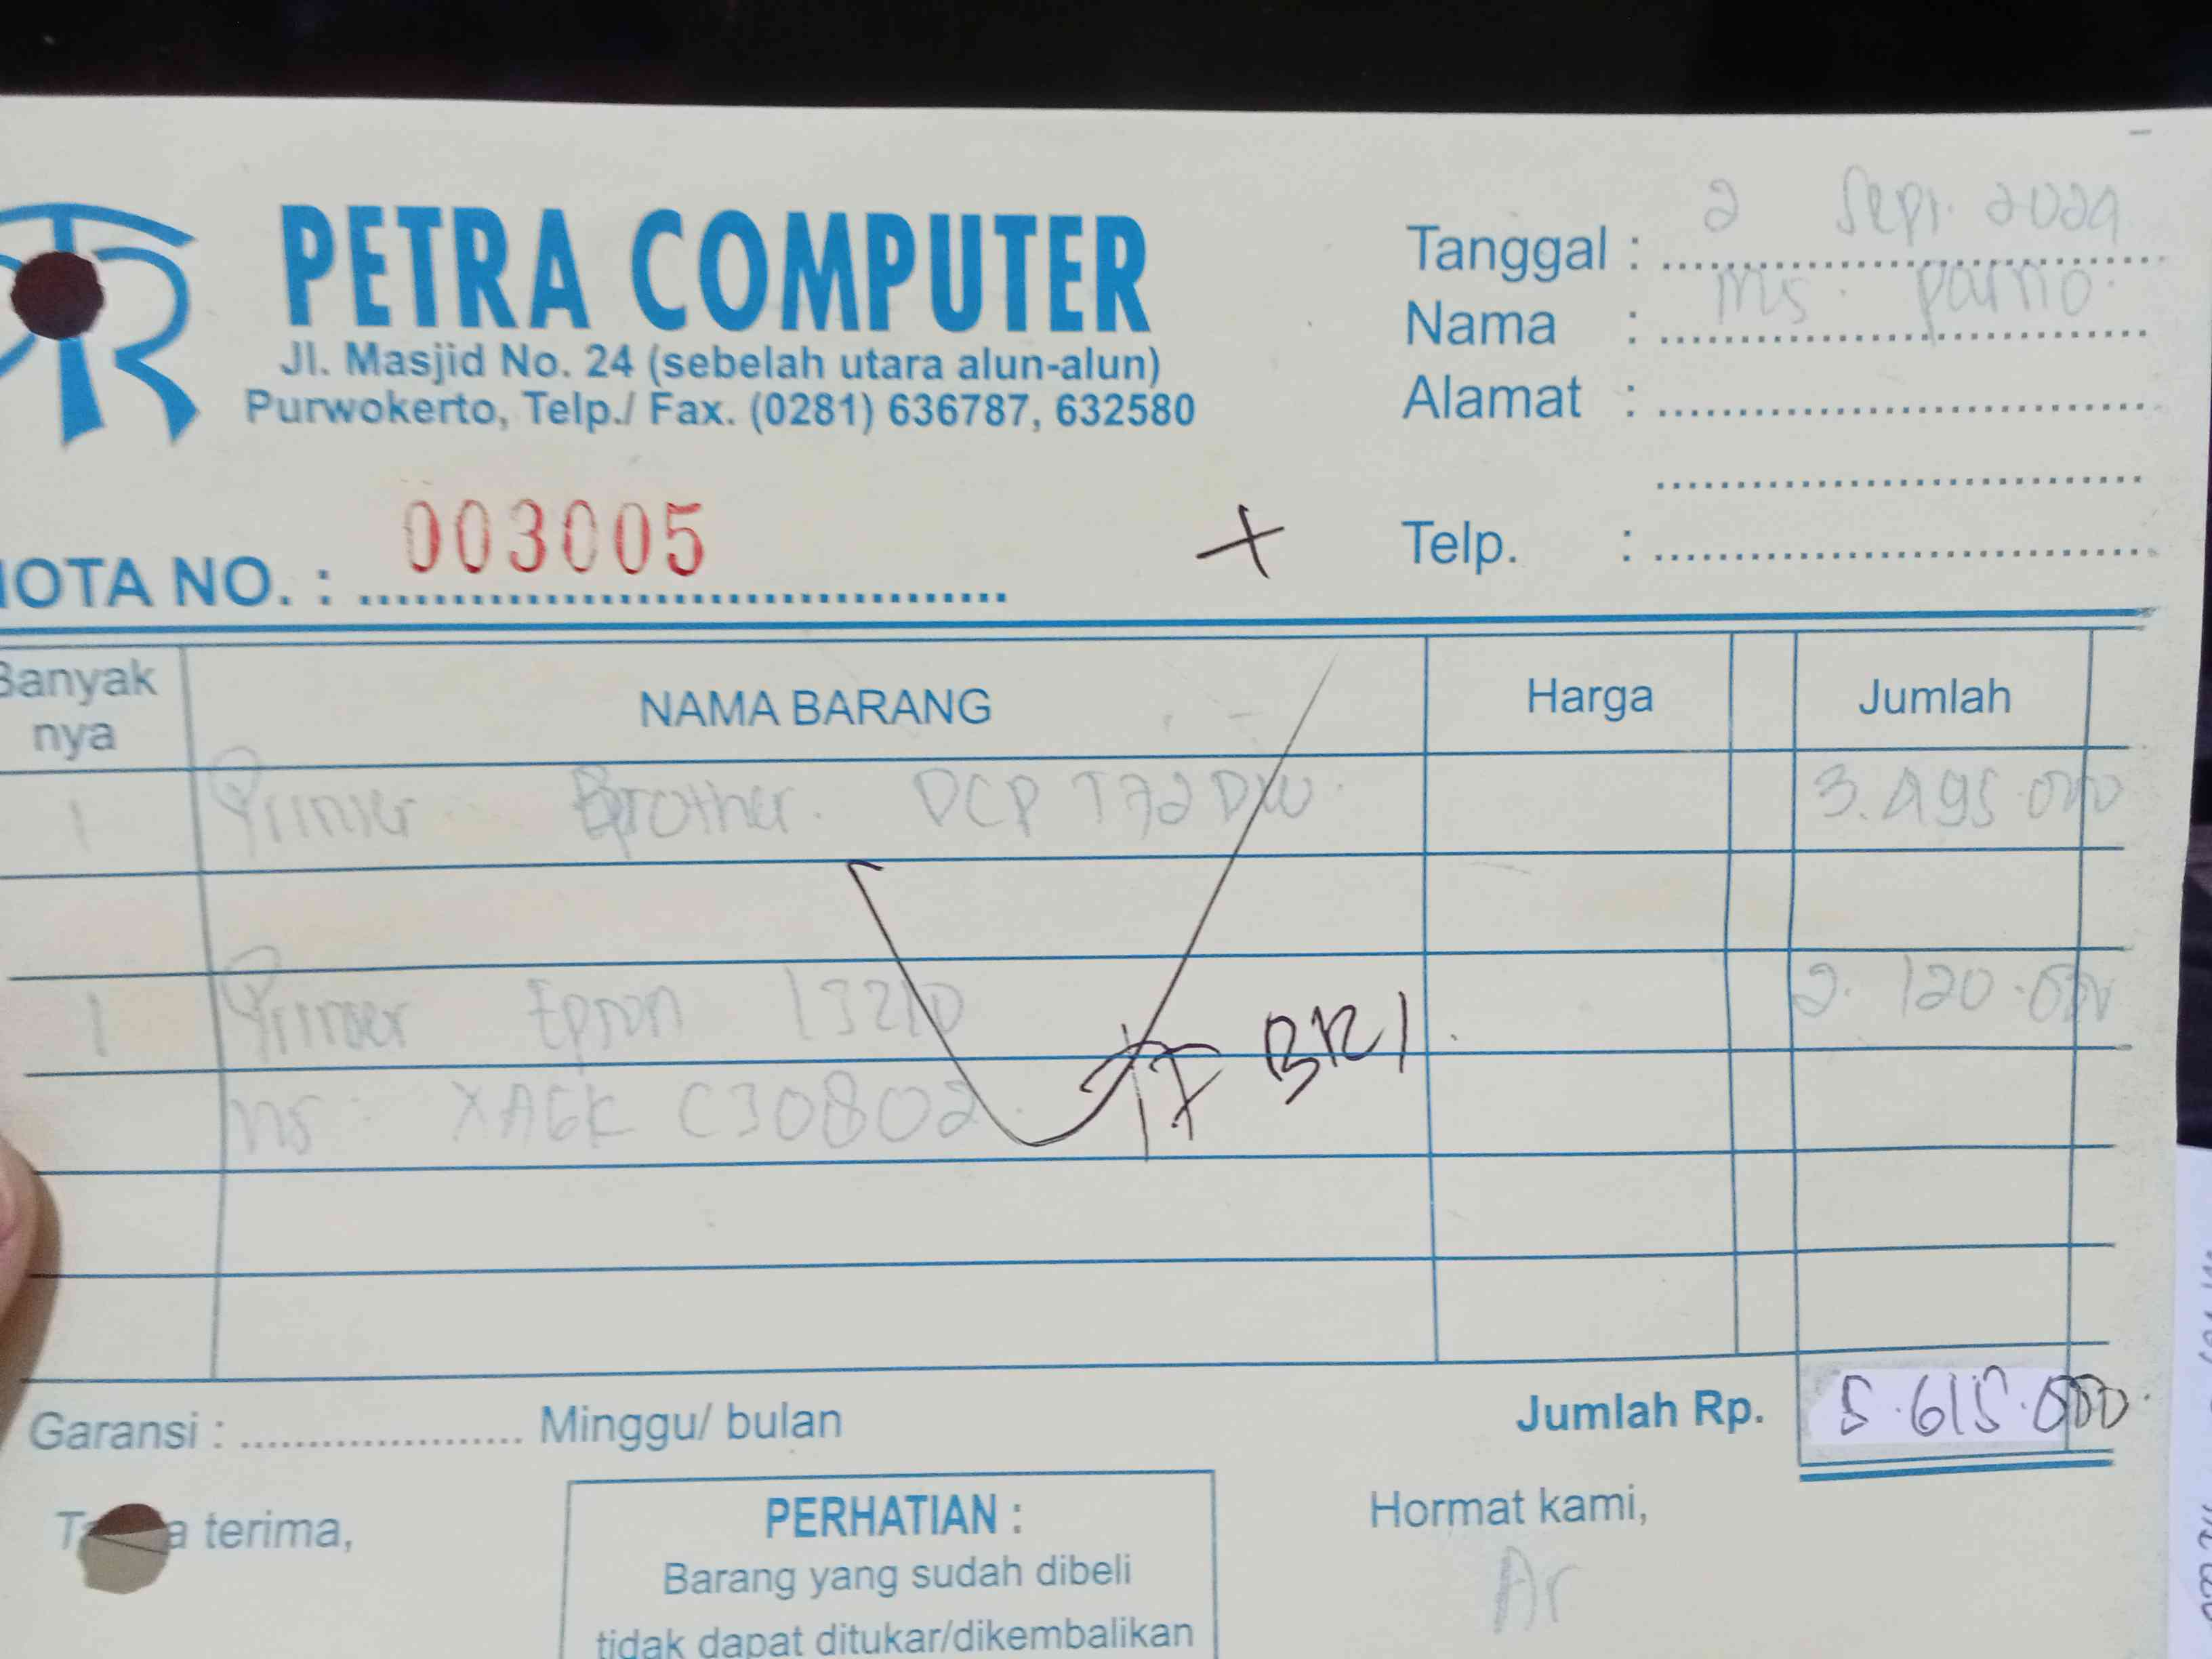 PETRA COMPUTER
Jl. Masjid No. 24 (sebelah utara alun-alun)
Purwokerto, Telp./ Fax. (0281) 636787, 632580
Tanggal : 2 Sept. 2024
Nama : ms. parno.
Alamat :
Telp. :
OTA NO. : 003005
Banyak nya NAMA BARANG Harga Jumlah
1 Printer Brother. DCP T720DW 3.495.000
1 Printer Epson L3210 2.120.000
XAGK C30802
TF BRI
Jumlah Rp. 5.615.000
Garansi : Minggu/ bulan
terima,
PERHATIAN :
Barang yang sudah dibeli
tidak dapat ditukar/dikembalikan
Hormat kami,
Ar